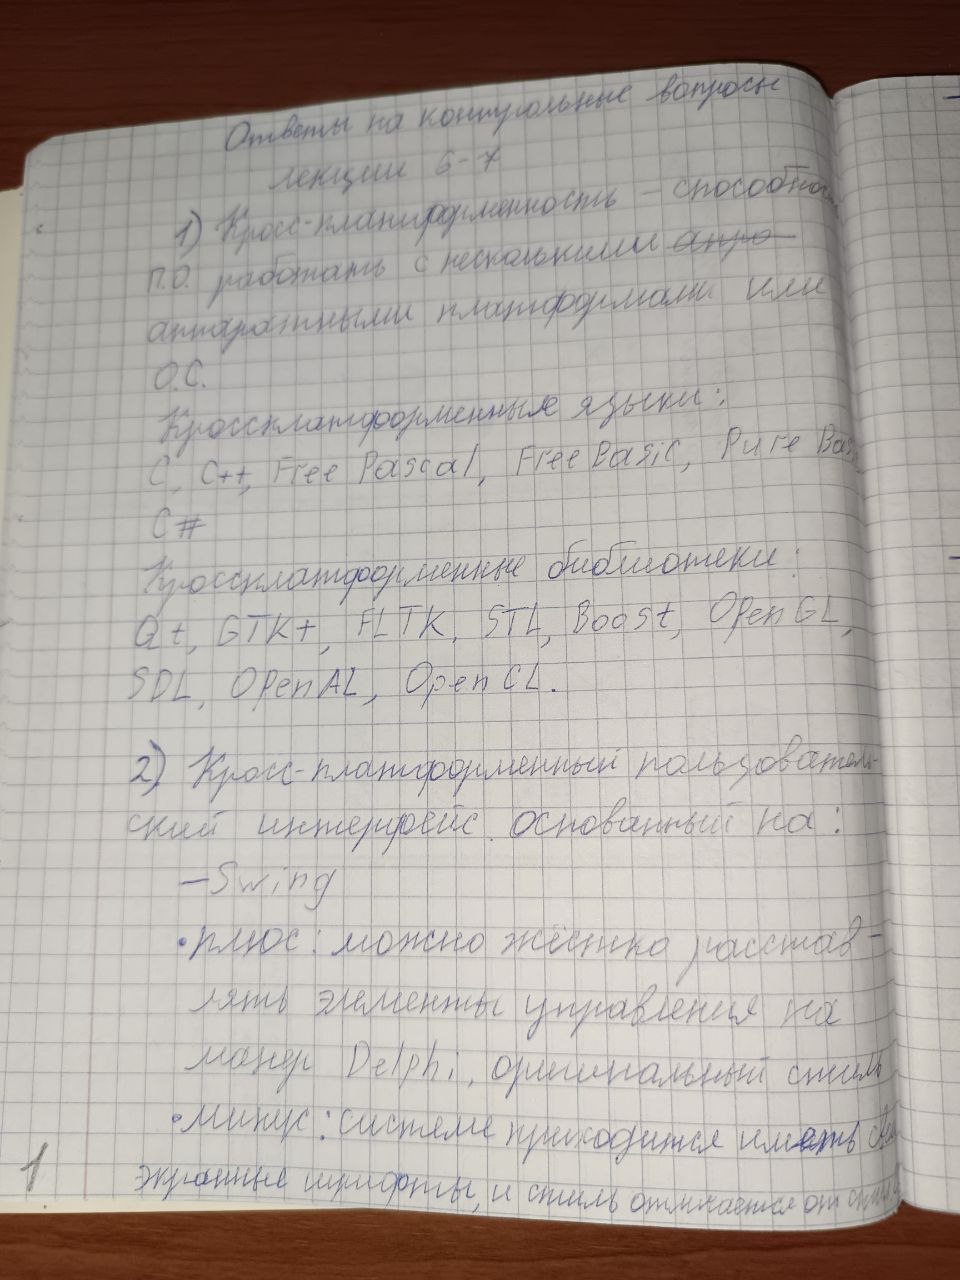 Ответы на контрольные вопросы
лекции 6-7
1) Кросс-платформенность - способность
П.О. работать с несколькими аппа
аппаратными платформами или
О.С.
Кроссплатформенные языки:
C, C++, Free Pascal, FreeBasic, Pure Basic
C#
Кроссплатформенные библиотеки:
Qt, GTK+, FLTK, STL, Boost, OpenGL,
SDL, OpenAL, OpenCL.
2) Кросс-платформенный пользователь-
ский интерфейс основанный на:
- Swing
• плюс: можно жёстко расстав-
лять элементы управления на
манер Delphi, оригинальный стиль
• минус: системе приходится иметь свои
экранные шрифты, и стиль отличается от
1